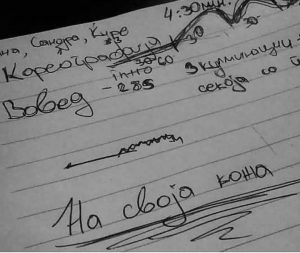 4:30мин.
на, Сандра, Кире
Кореографија 30
за 30-60 30
intro
Вовед - 28s
3 кулминации
секоја со
На своја кожа